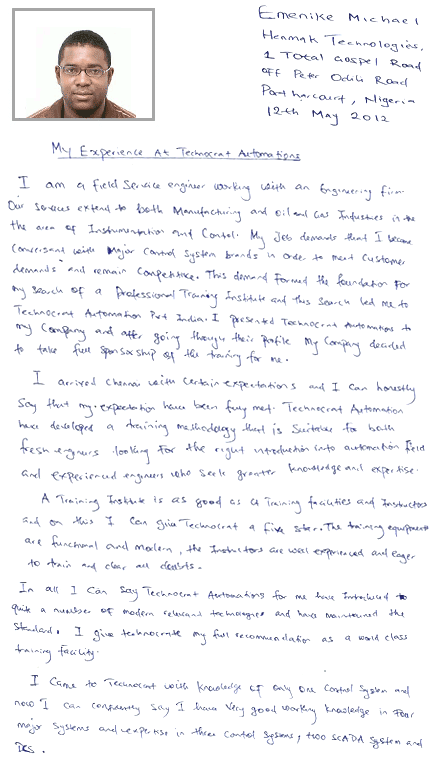 Emenike Michael
Henmak Technologies,
1 Total Gospel Road
off Peter Odili Road
Port harcourt, Nigeria
12th May 2012
My Experience At Technocrat Automations
I am a field service engineer working with an Engineering firm
Our services extend to both Manufacturing and oil and Gas Industries in the
the area of Instrumentation and Control. My Job demands that I become
conversant with Major Control System brands in order to meet customer
demands and remain Competitive. This demand formed the foundation for
my search of a professional Training Institute and this search led me to
Technocrat Automation Pvt India. I presented Technocrat Automations to
my Company and after going through their profile My Company decided
to take full sponsorship of the training for me.
I arrived Chennai with certain expectations and I can honestly
say that my expectation have been fully met. Technocrat Automation
have developed a training methodology that is suitable for both
fresh engineers looking for the right introduction into automation field
and experienced engineers who seek greater knowledge and expertise.
A Training Institute is as good as its Training facilities and Instructors
and on this I can give Technocrat a five star. The training equipments
are functional and modern, the Instructors are well experienced and eager
to train and clear all doubts.
In all I can say Technocrat Automations for me have introduced to
quite a number of modern relevant technologies and have maintained the
standard. I give technocrats my full recommendation as a world class
training facility.
I came to Technocrat with knowledge of only one control system and
now I can confidently say I have very good working knowledge in four
major systems and expertise in three control systems, two SCADA System and
DCS.